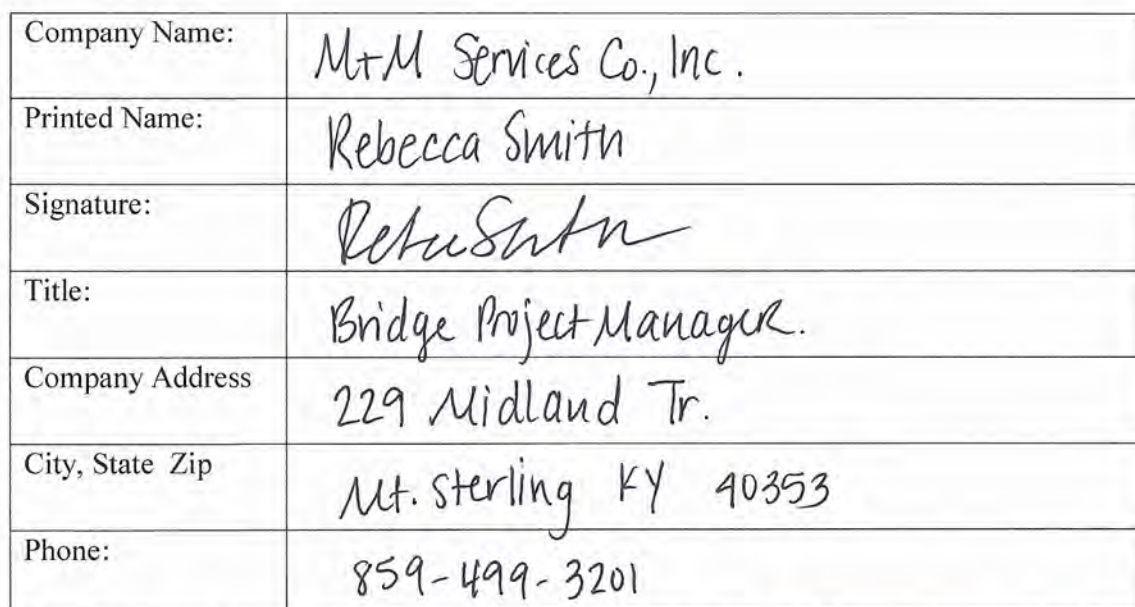 Company Name: M+M Services Co., Inc.
Printed Name: Rebecca Smith
Signature:
Title: Bridge Project Manager.
Company Address 229 Midland Tr.
City, State Zip Mt. Sterling KY 40353
Phone: 859-499-3201